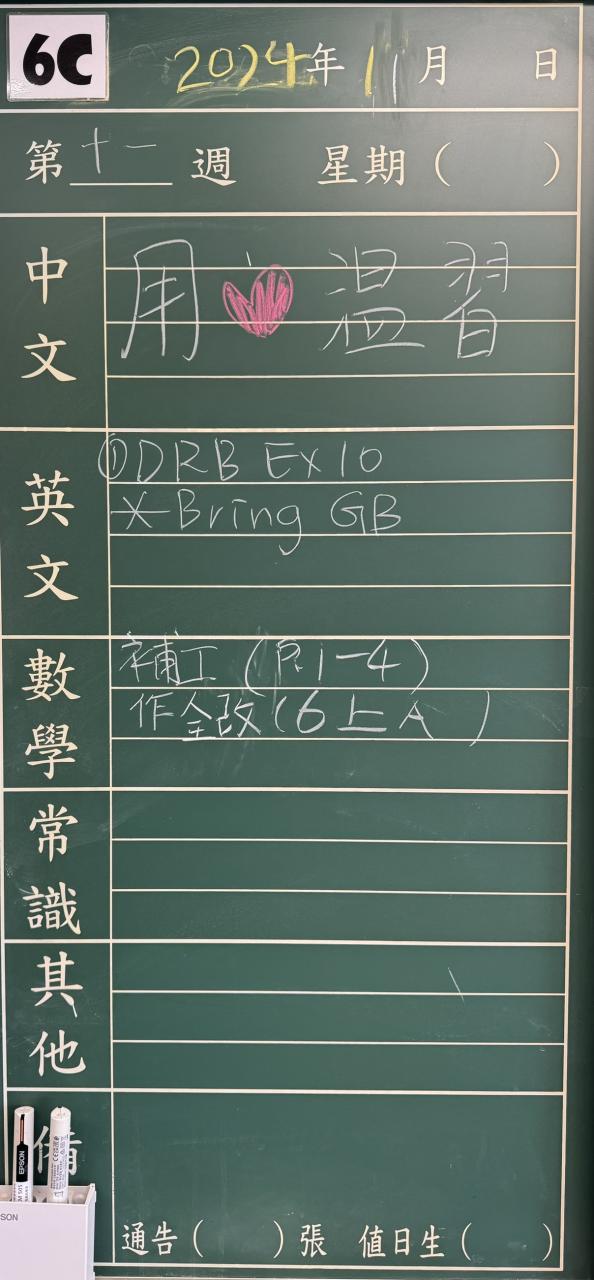 6C
2024年11月 日
第十一週 星期( )
中文
用 溫習
英文
①DRB Ex10
※Bring GB
數學
補工(P.1-4)
作全改(6上A)
常識
其他
備
通告( )張 值日生( )
EPSON
SON